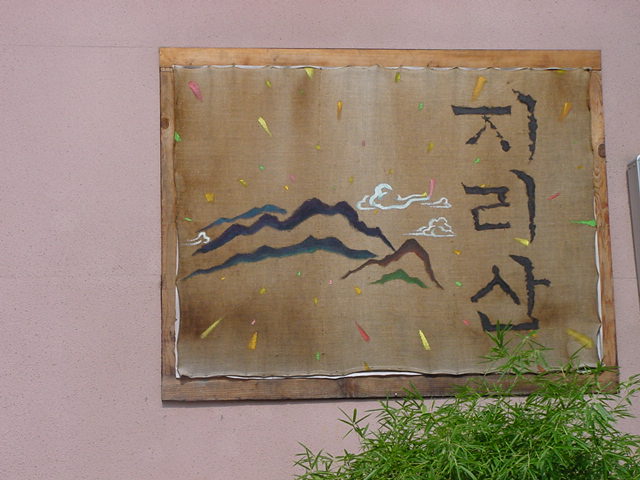 지리산